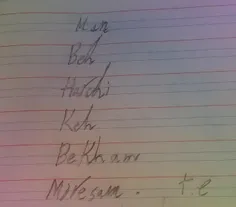 Men
Beh
Harshi
Keh
BeKham
Miresam. t.e